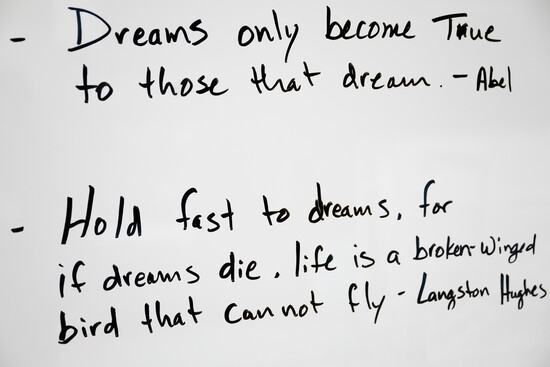 - Dreams only become True
to those that dream. - Abel
- Hold fast to dreams, for
if dreams die, life is a broken-winged
bird that cannot fly - Langston Hughes